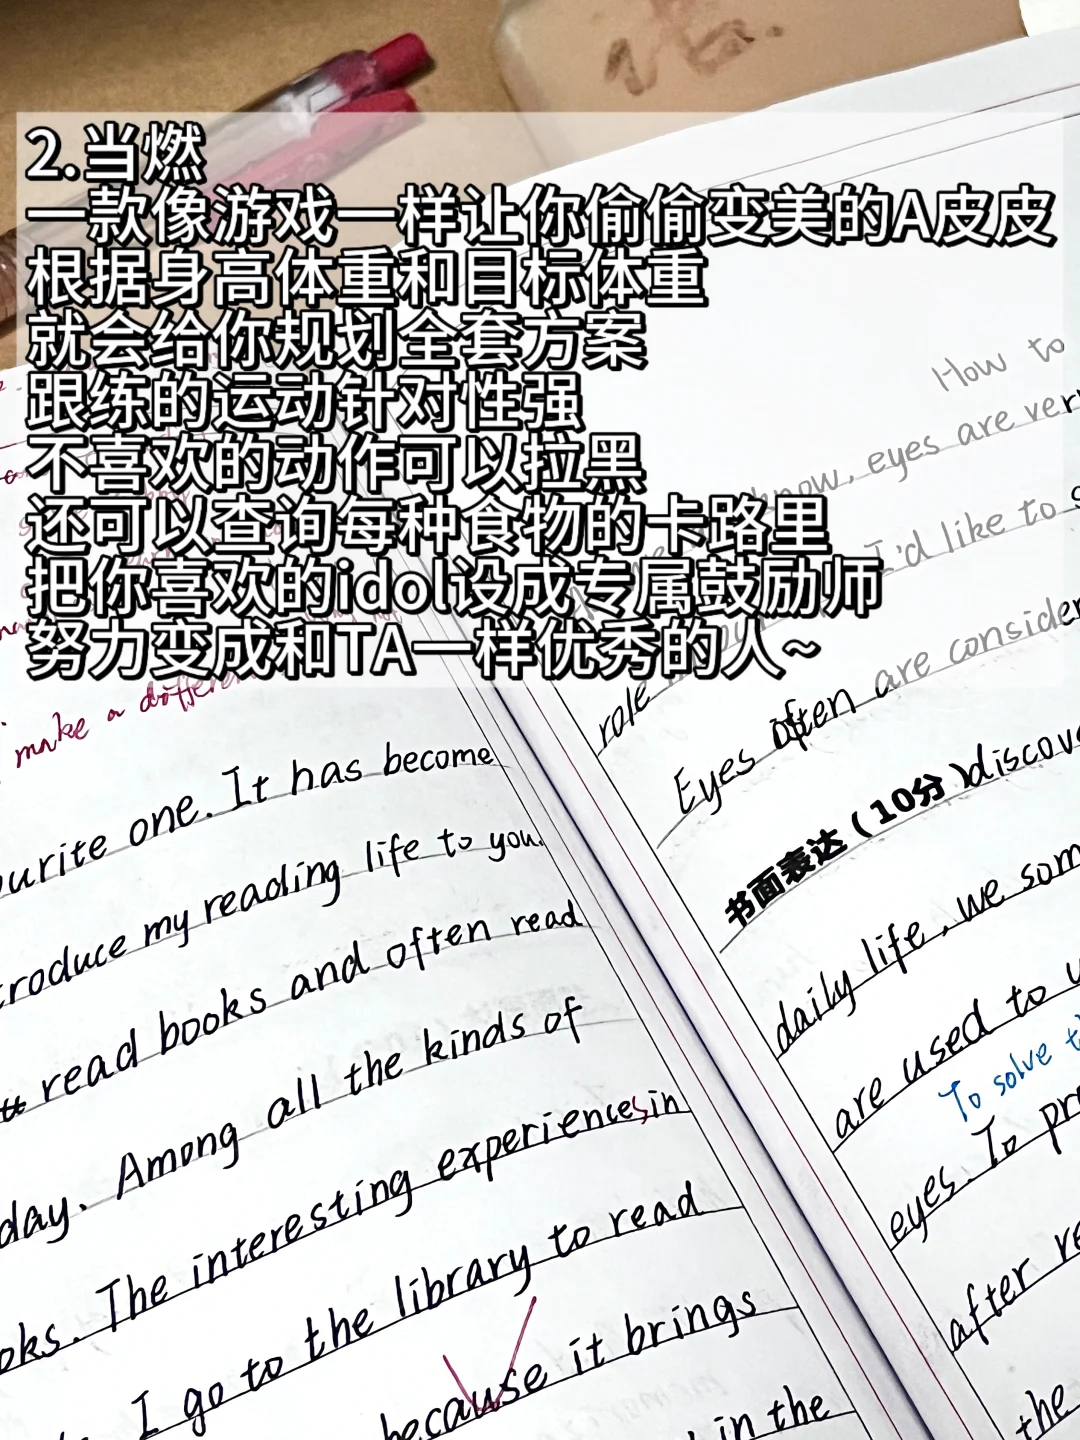 2.当燃
一款像游戏一样让你偷偷变美的A皮皮
根据身高体重和目标体重
就会给你规划全套方案
跟练的运动针对性强
不喜欢的动作可以拉黑
还可以查询每种食物的卡路里
把你喜欢的idol设成专属鼓励师
努力变成和TA一样优秀的人~
make a
one. It has become
my reading life to you.
read books and often read
day. Among all the kinds of
The interesting experiences in
I go to the library to read
because it brings
in the
How to
know, eyes are
I'd like to
role
Eyes often are
书面表达（10分）
daily life, we
are used to
To solve
eyes. To
after
the